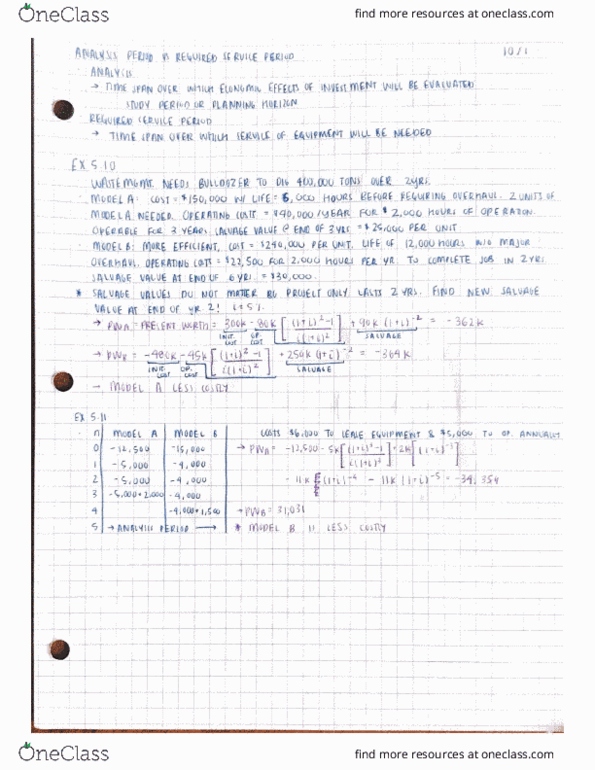 OneClass
find more resources at oneclass.com
ANALYSIS PERIOD VS REQUIRED SERVICE PERIOD
10/1
ANALYSIS
→ TIME SPAN OVER WHICH ECONOMIC EFFECTS OF INVESTMENT WILL BE EVALUATED
STUDY PERIOD OR PLANNING HORIZON
REQUIRED SERVICE PERIOD
→ TIME SPAN OVER WHICH SERVICE OF EQUIPMENT WILL BE NEEDED
EX 5.10
WASTE MGMT. NEEDS BULLDOZER TO DIG 400,000 TONS OVER 2YRS.
· MODEL A: COST = $150,000 W/ LIFE = 6,000 HOURS BEFORE REQUIRING OVERHAUL. 2 UNITS OF
MODEL A NEEDED. OPERATING COSTS = $40,000/YEAR FOR 2,000 HOURS OF OPERATION.
OPERABLE FOR 3 YEARS. SALVAGE VALUE @ END OF 3 YRS = $25,000 PER UNIT
· MODEL B: MORE EFFICIENT, COST = $240,000 PER UNIT. LIFE OF 12,000 HOURS W/O MAJOR
OVERHAUL. OPERATING COSTS = $22,500 FOR 2,000 HOURS PER YR. TO COMPLETE JOB IN 2 YRS
SALVAGE VALUE AT END OF 6 YRS. = $30,000.
* SALVAGE VALUES DO NOT MATTER BC PROJECT ONLY LASTS 2 YRS. FIND NEW SALVAGE
VALUE AT END OF YR 2!
→ PWA = PRESENT WORTH = 300K - 80K [(1+i)^2 - 1 / i(1+i)^2] + 90K (1+i)^-2 = -362K
INIT. COST OP. COST SALVAGE
→ PWB = -480K - 45K [(1+i)^2 - 1 / i(1+i)^2] + 250K (1+i)^-2 = -364K
INIT. COST OP. COST SALVAGE
→ MODEL A LESS COSTLY
EX 5.11
n MODEL A MODEL B COSTS $6,000 TO LEASE EQUIPMENT & $5,000 TO OP. ANNUALLY
0 -12,500 -15,000 → PWA = -12,500 - 5K [(1+i)^3 - 1 / i(1+i)^3] + 2K [(1+i)^-3]
1 -5,000 -4,000
2 -5,000 -4,000 - 11K (1+i)^-4 - 11K (1+i)^-5 = -34,359
3 -5,000+2,000 -4,000
4 -4,000+1,500 → PWB = 31,031
5 → ANALYSIS PERIOD → * MODEL B IS LESS COSTLY
OneClass
find more resources at oneclass.com